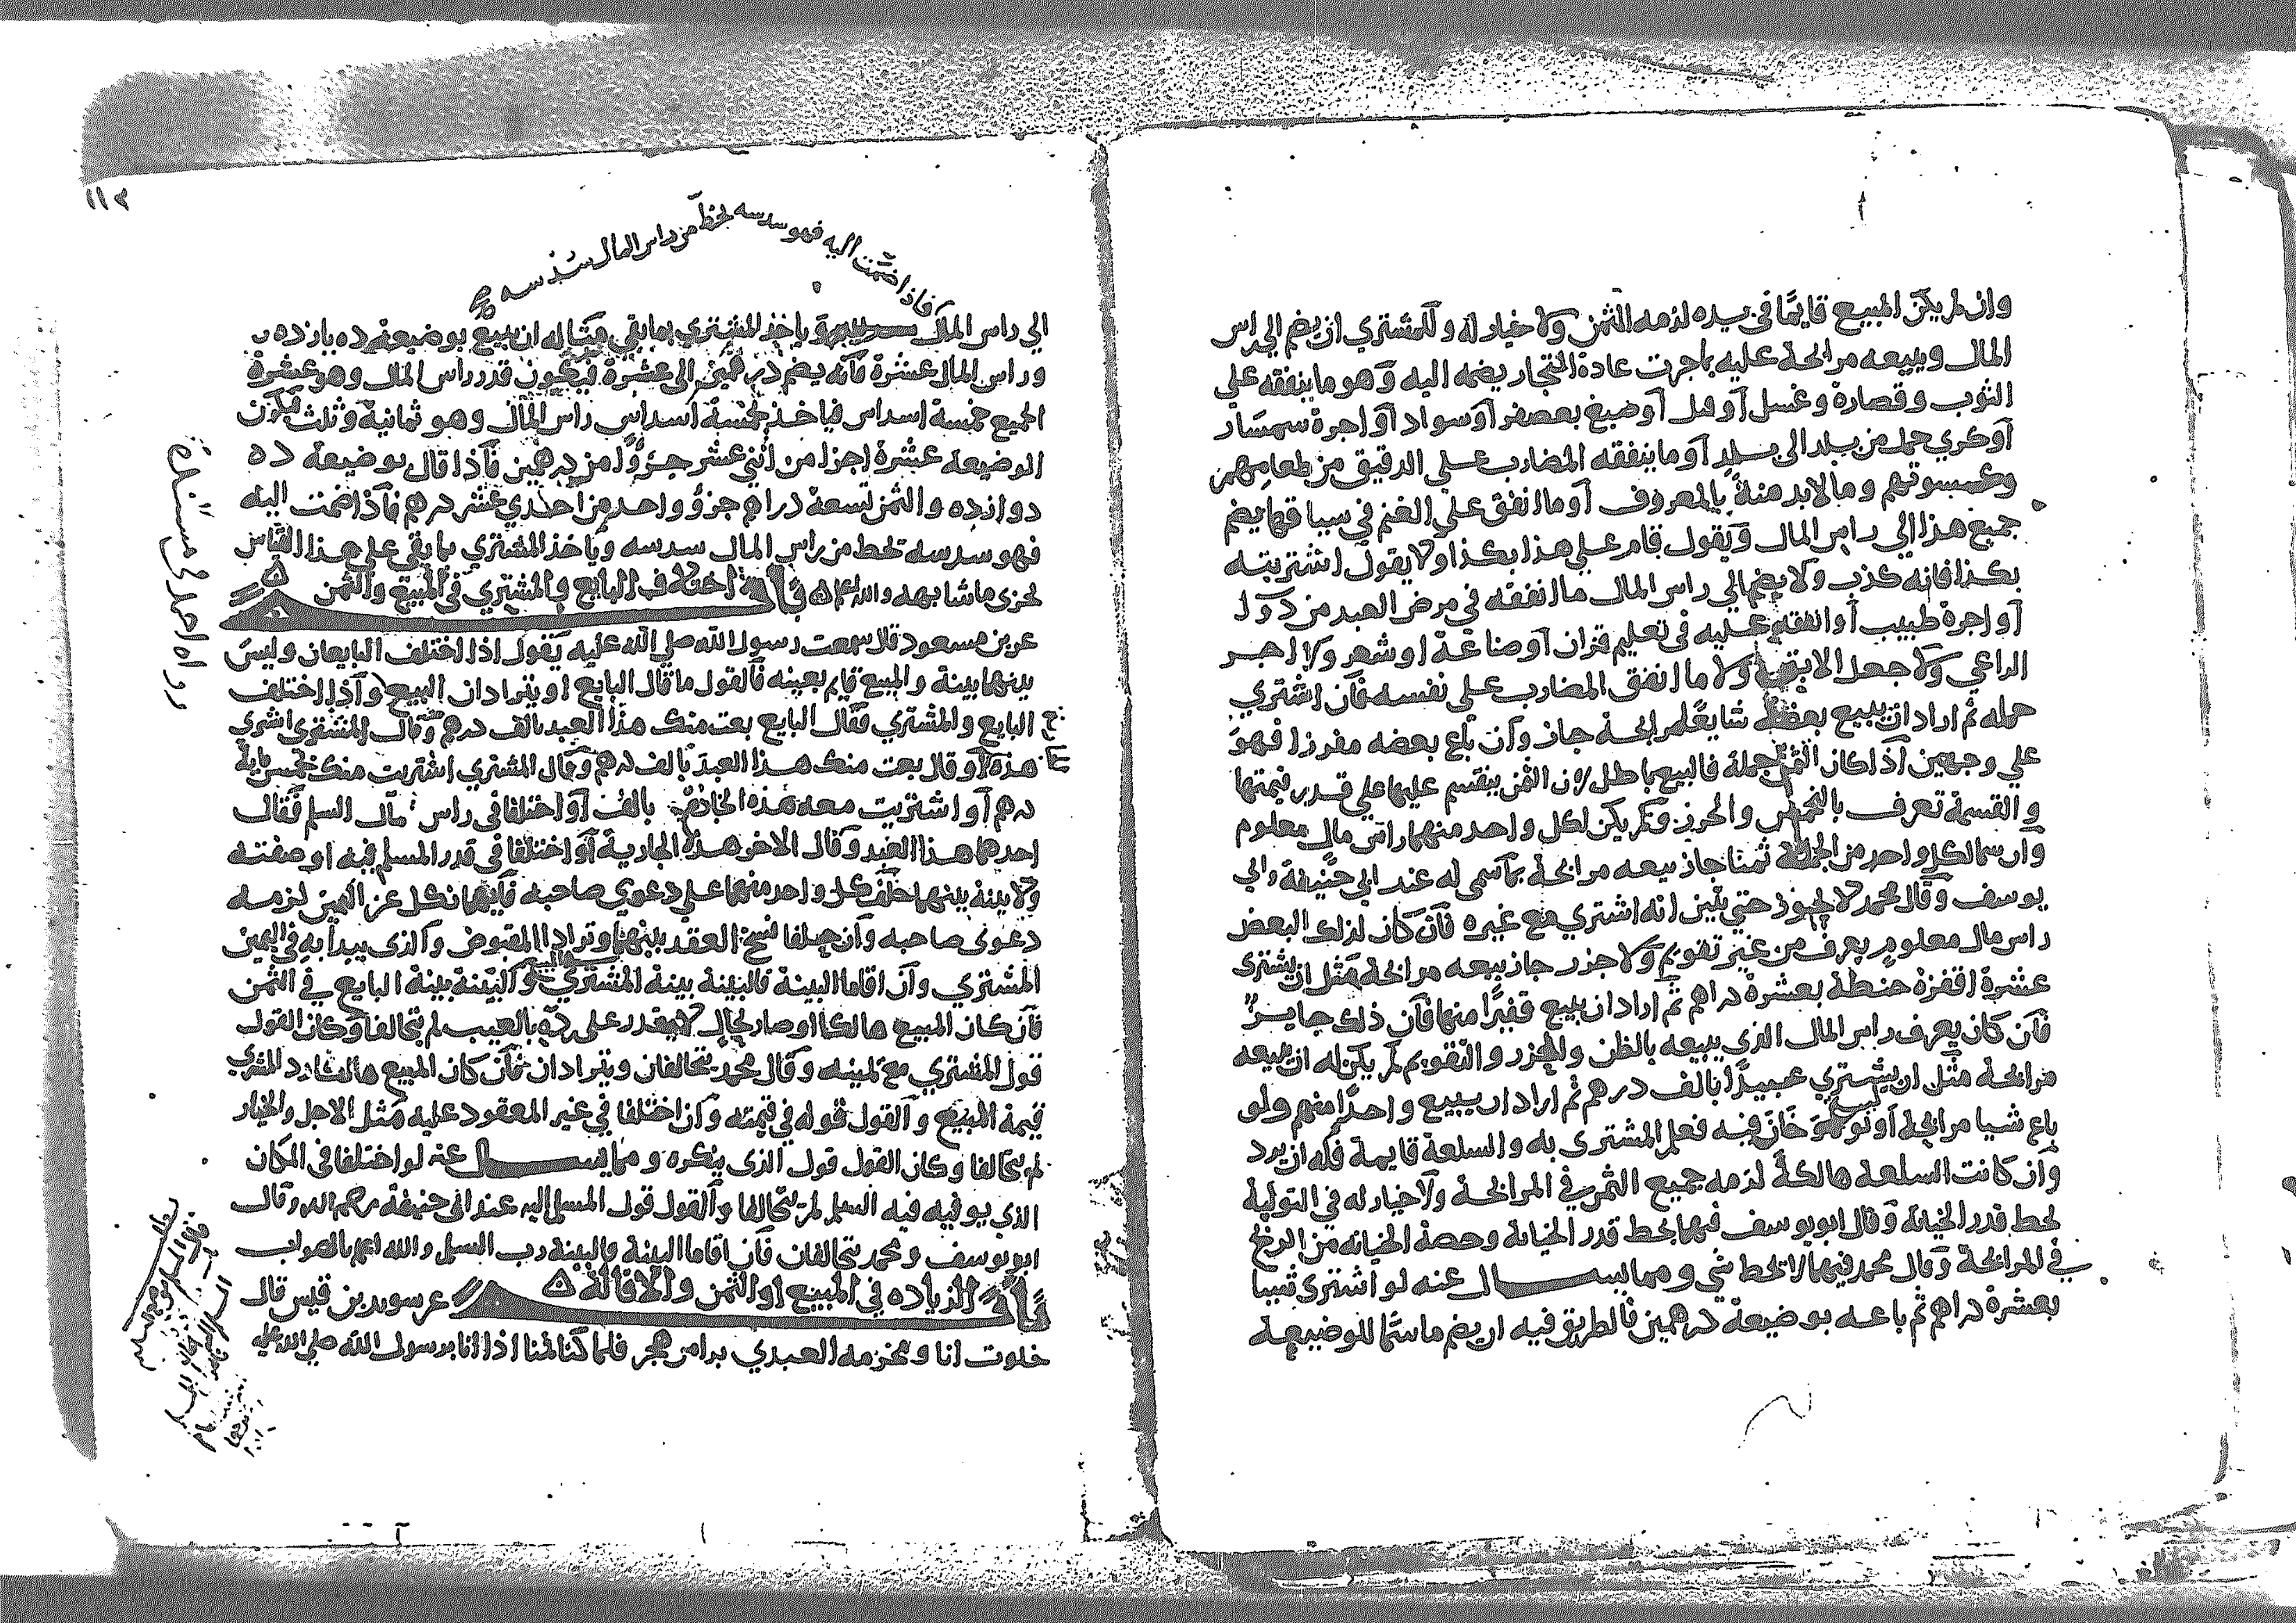 وان لم يكن المبيع قايمًا في يده لزمه الثمن ولا خيار له وللمشتري ان يضم الي راس
المال ويبيعه مرابحة عليه ما جرت عادة التجار بضمه اليه وهو ما ينفقه علي
الثوب وقصارة وغسل او فتل او صبغ بعصفر او سواد او اجرة سمسار
او كري حمل من بلد الى بلد او ما ينفقه المضارب علي الرقيق من طعامهم
وكسوتهم وما لابد منه بالمعروف او ما انفق علي الغنم في سياقها يضم
جميع هذا الي راس المال ويقول قام علي هذا بكذا ولا يقول اشتريته
بكذا فانه كذب ولا يضم الي راس المال ما انفقه في مرض العبد من دوا
او اجرة طبيب او انفقه عليه في تعليم قران او صناعة او شعر ولا اجر
الراعي ولا جعل الابق ولا ما انفق المضارب علي نفسه فان اشتري
جمله ثم اراد ان يبيع بعضها شايعًا مرابحة جاز وان باع بعضه مفرزا فهو
علي وجهين اذا كان الثمن جملة فالبيع باطل لان الثمن ينقسم عليها علي قدر قيمتها
والقسمة تعرف بالتخمين والحرز ولم يكن لكل واحد منهما راس مال معلوم
وان سما لكل واحد من الجملة ثمنا جاز بيعه مرابحة بما سمى له عند ابي حنيفة وابي
يوسف وقال محمد لا يجوز حتي يبين انه اشتري مع غيره فان كان لذلك البعض
راس مال معلوم يعرف من غير تقويم ولا حزر جاز بيعه مرابحة مثل ان يشتري
عشرة اقفزة حنطة بعشرة دراهم ثم اراد ان يبيع قفيزًا منها فان ذلك جايز
فان كان يعرف راس المال الذي يبيعه بالظن والحزر والتقويم لم يكن له ان يبيعه
مرابحة مثل ان يشتري عبيدًا بالف درهم ثم اراد ان يبيع واحدًا منهم ولو
باع شيا مرابحة او تولية خان فيه فعلم المشتري به والسلعة قايمة فله ان يرد
وان كانت السلعة هالكة لزمه جميع الثمن في المرابحة ولا خيار له في التولية
يحط قدر الخيانة وقال ابو يوسف فيهما يحط قدر الخيانة وحصة الخيانة من الربح
في المرابحة وقال محمد فيهما لا يحط شي ومما يسال عنه لو اشترى شيا
بعشرة دراهم ثم باعه بوضيعة درهمين فالطريق فيه ان يضم ما سمًا للوضيعة
١١٢
فاذا ضمت اليه فهو سدسه يحط من راس المال سدسه
الي راس المال وياخذ المشتري بما بقي مثاله ان يبيع بوضيعة ده يازده
وراس المال عشرة فانه يضم درهمين الى عشرة فيكون قدر راس المال وهو عشرة
الجميع خمسة اسداس فياخذ بخمسة اسداس راس المال وهو ثمانية وثلث فيكون
الوضيعة عشرة اجزا من اثني عشر جزوًا من درهمين فاذا قال بوضيعة ده
دوازده والثمن تسعة دراهم جزو واحد من احدي عشر درهم فاذا ضمت اليه
فهو سدسه تحط من راس المال سدسه وياخذ المشتري بما بقي علي هذا القياس
يجزى ما شابهه والله اعلم باب اختلاف البايع والمشتري في المبيع والثمن
عن بن مسعود قال سمعت رسول الله صلي الله عليه يقول اذا اختلف البايعان وليس
بينهما بينة والمبيع قايم بعينه فالقول ما قال البايع او يترادان البيع واذا اختلف
البايع والمشتري فقال البايع بعت منك هذا العبد بالف درهم وقال المشتري اشتري
هذه او قال بعت منك هذا العبد بالف درهم وقال المشتري اشتريت منك بخمس ماية
درهم او اشتريت معه هذه الخادم بالف او اختلفا في راس مال السلم فقال
احدهما هذا العبد وقال الاخر هذه الجارية او اختلفا في قدر المسلم فيه او صفته
ولا بينة بينهما حلف كل واحد منهما علي دعوي صاحبه فايهما نكل عن اليمين لزمه
دعوى صاحبه وان حلفا فسخ العقد بينهما وترادا المقبوض والذي يبدا به في اليمين
المشتري وان اقاما البينة فالبينة بينة المشتري في المبيع والبينة بينة البايع في الثمن
فان كان المبيع هالكا او صار بحال لا يقدر على رده بالعيب لم يتحالفا وكان القول
قول المشتري مع يمينه وقال محمد يتحالفان ويترادان فان كان المبيع هالكا رد المشتري
قيمة المبيع والقول قوله في قيمته وان اختلفا في غير المعقود عليه مثل الاجل والخيار
لم يتحالفا وكان القول قول الذى ينكره ومما يسال عنه لو اختلفا في المكان
الذي يوفيه فيه السلم لم يتحالفا والقول قول المسلم اليه عند ابي حنيفة رحمه الله وقال
ابو يوسف ومحمد يتحالفان فان اقاما البينة والبينة رب السلم والله اعلم بالصواب
باب الزياده في المبيع او الثمن والاقالة عن سويد بن قيس قال
جلبت انا ومخرمه العبدي بزا من هجر فلما كنا بمنا اذا انا برسول الله صلي الله عليه
رواه احمد في مسنده